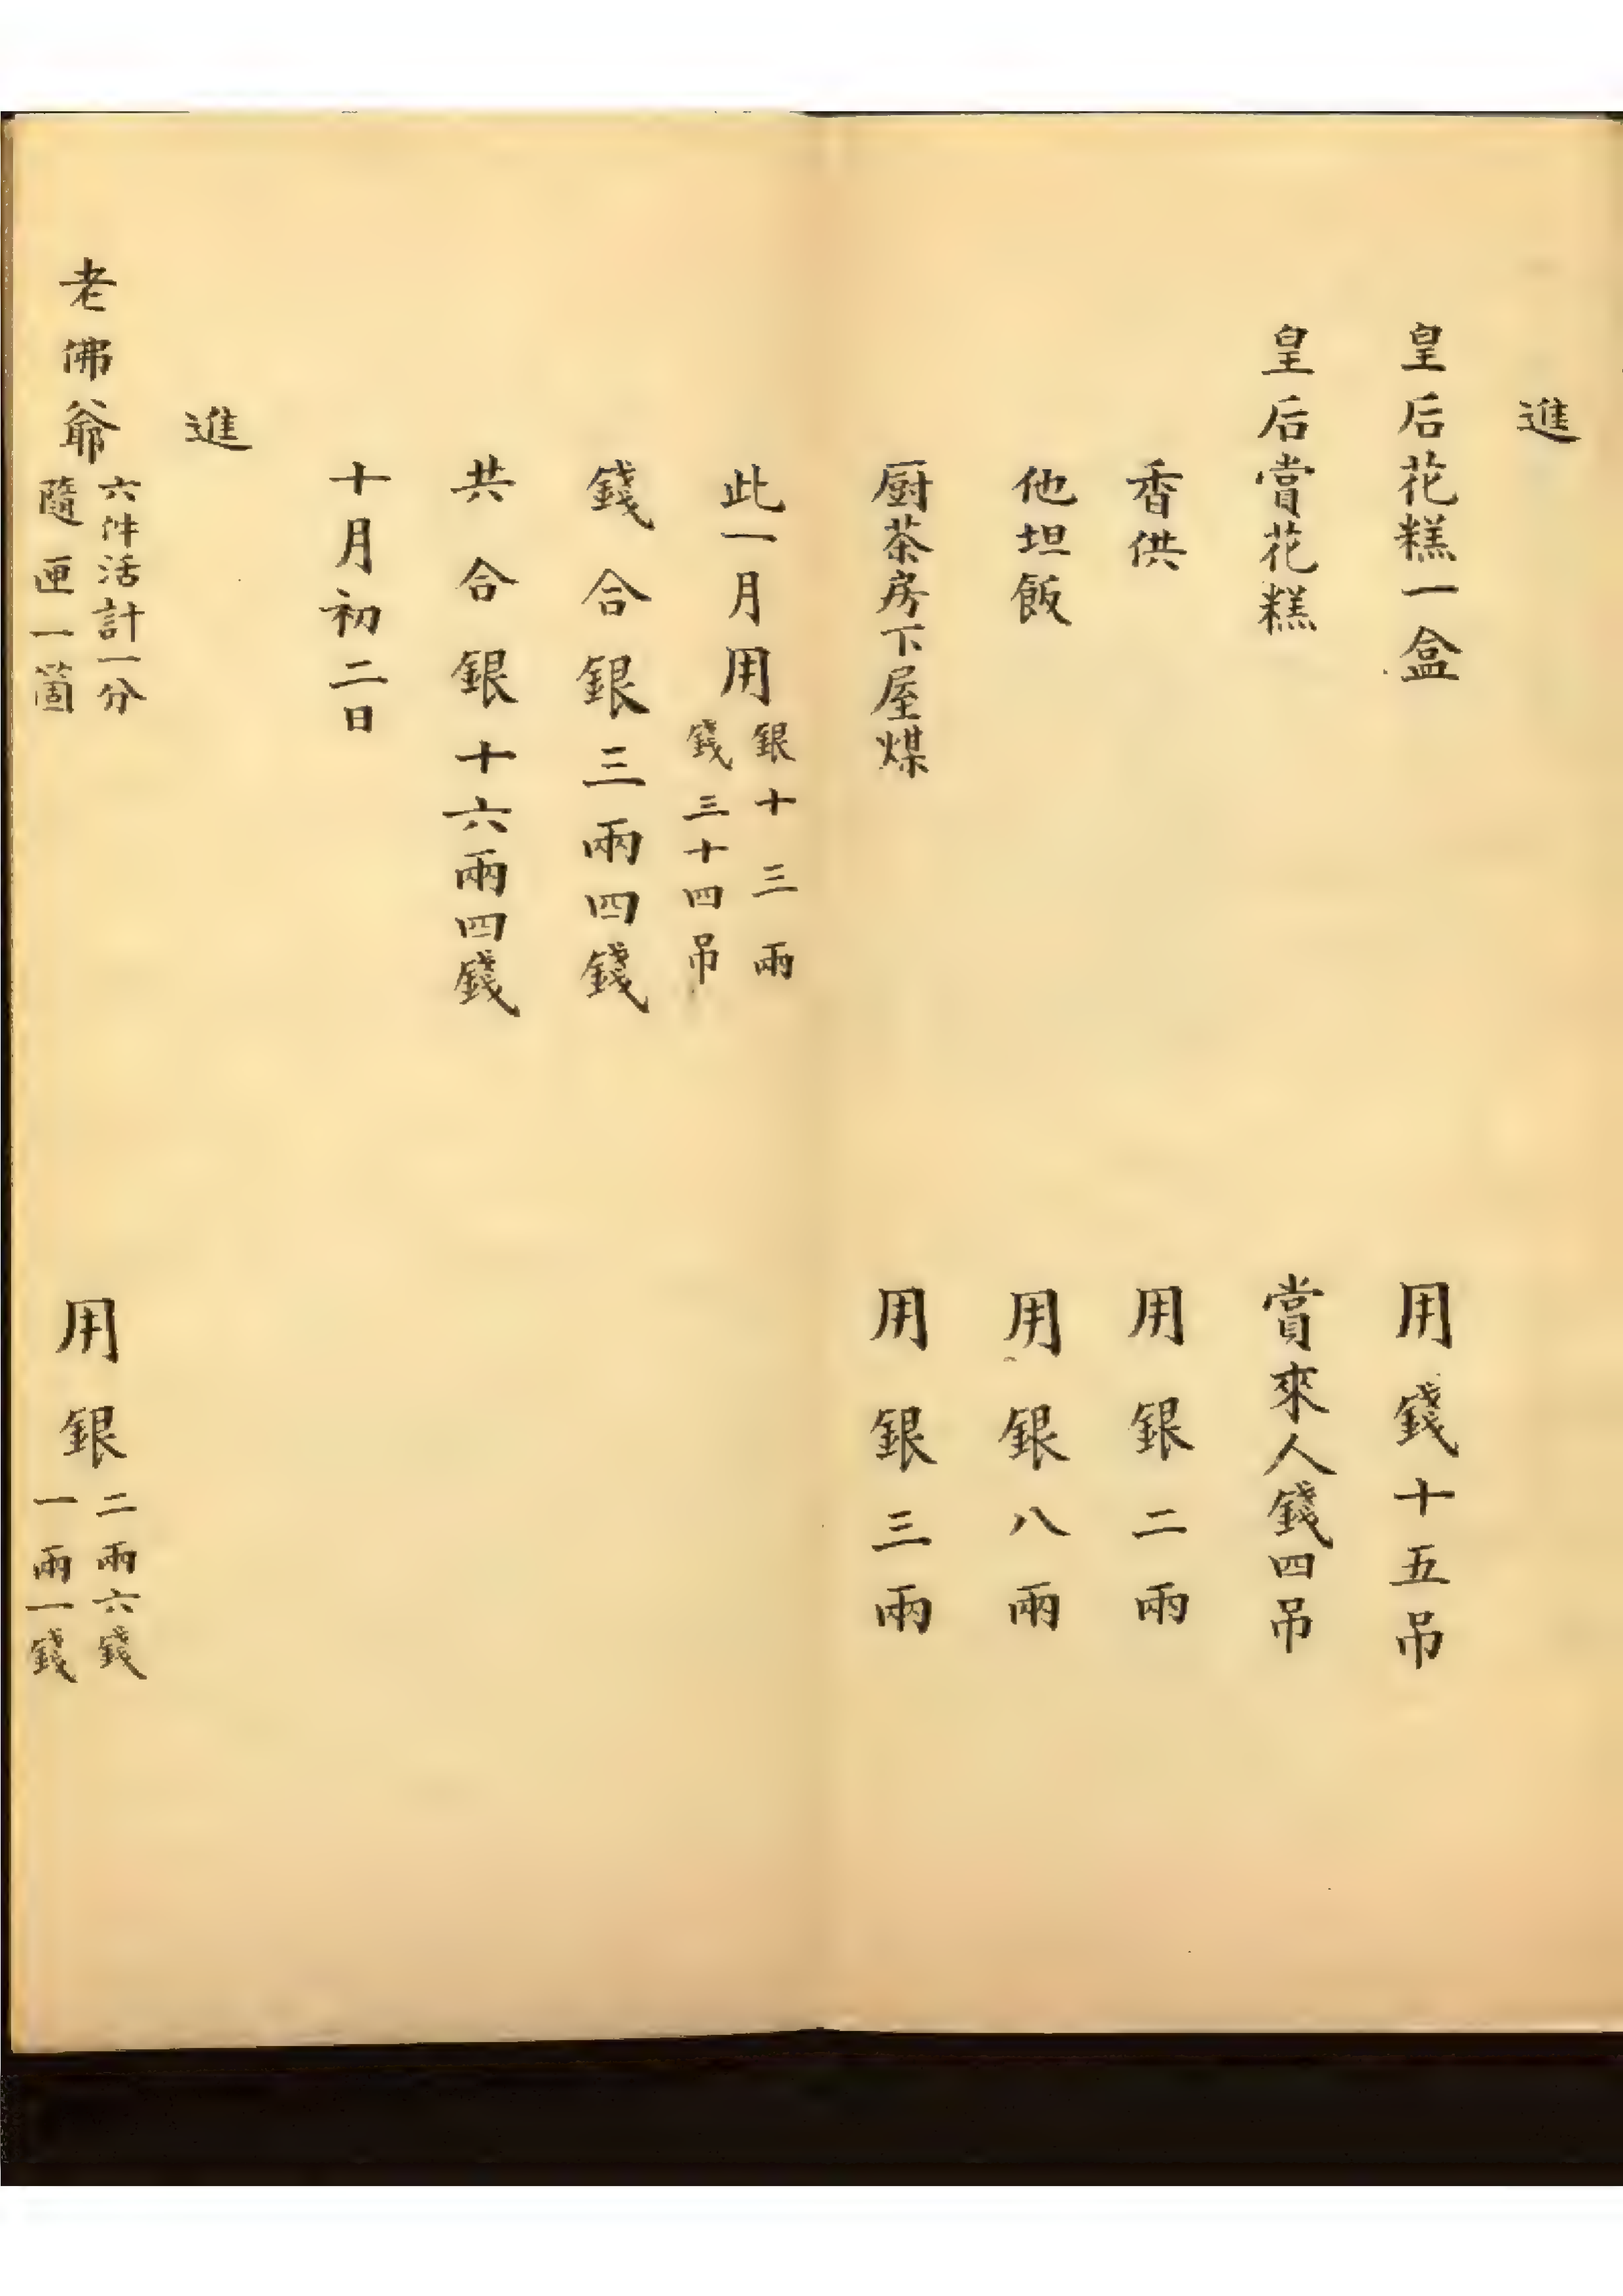 進
皇后花糕一盒 用錢十五吊
皇后賞花糕 賞來人錢四吊
香供 用銀二兩
他坦飯 用銀八兩
厨茶房下屋煤 用銀三兩
此一月用 銀十三兩 錢三十四吊
錢合銀三兩四錢
共合銀十六兩四錢
十月初二日
進
老佛爺 六件活計一分 隨匣一箇 用銀 二兩六錢 一兩一錢